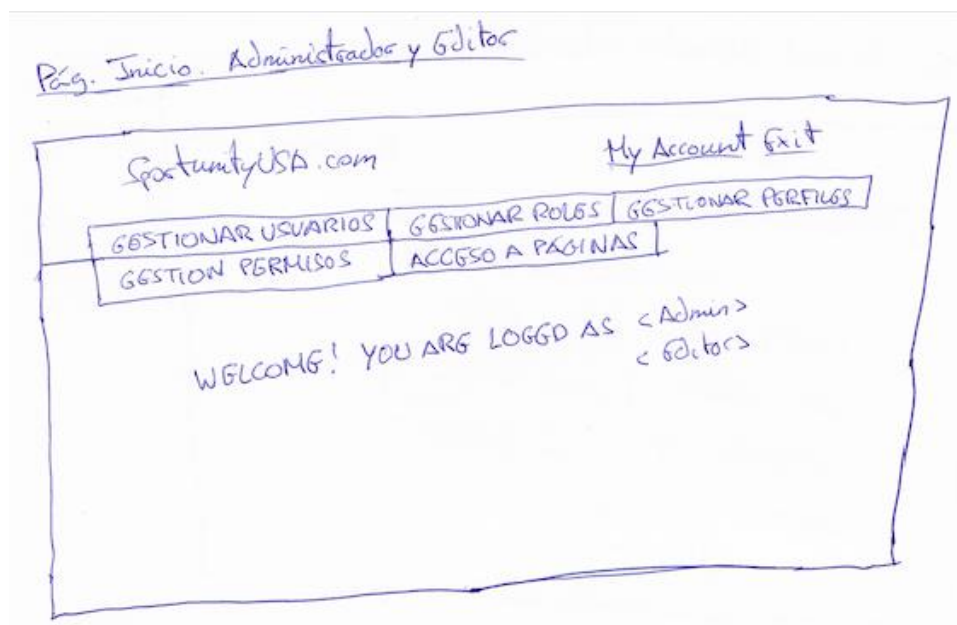 Pág. Inicio. Administrador y Editor
SportunityUSA.com My Account Exit
GESTIONAR USUARIOS GESTIONAR ROLES GESTIONAR PERFILES
GESTION PERMISOS ACCESO A PAGINAS
WELCOME! YOU ARE LOGGD AS <Admin>
<Editor>